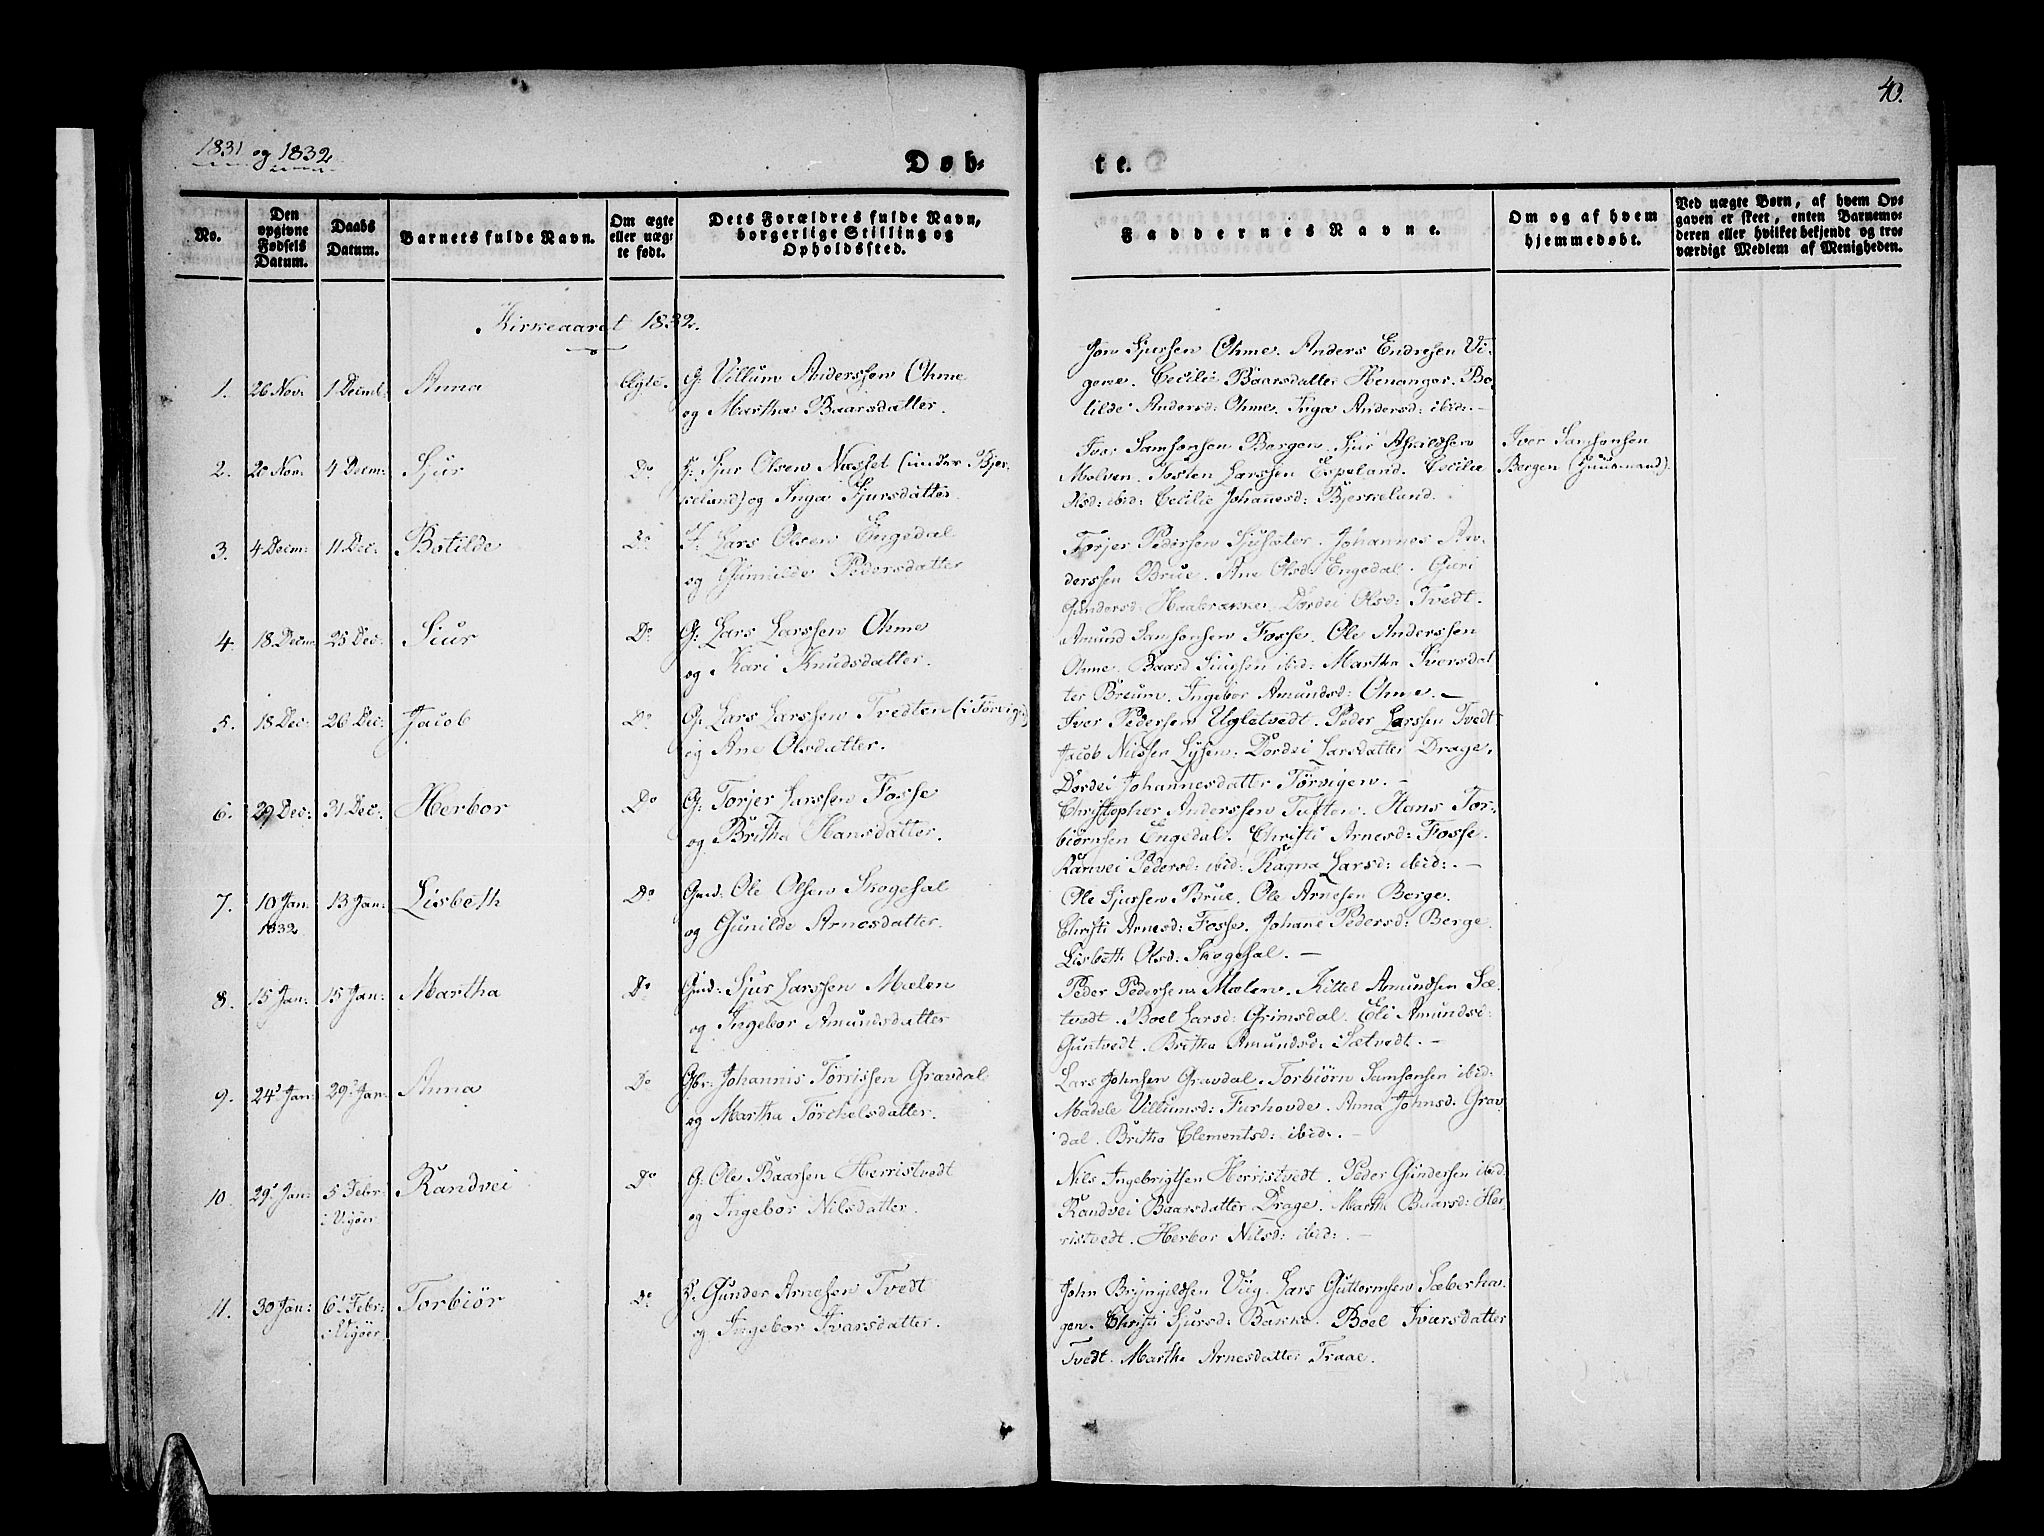 40.
1831 og 1832
Døb-
te.
No.
Den opgivne Fødsels Datum.
Daabs Datum.
Barnets fulde Navn.
Om ægte eller uægte født.
Dets Forældres fulde Navn, borgerlige Stilling og Opholdssted.
Faddernes Navne.
Om og af hvem hjemmedøbt.
Ved uægte Børn, af hvem Opgaven er skeet, enten Barnemoderen eller hvilket bekjendt og troværdigt Medlem af Menigheden.
Kirkeaaret 1832.
1. 26 Nov. 1 Decmb. Anna Ægte. G: Villum Anderssen Ohme
og Martha Baarsdatter.
Jon Sjursen Ohme. Anders Endresen Vi-
gene. Cecilie Baarsdatter Henanger. Bo-
tilde Andersd: Ohme. Inga Andersd: ibid: –
2. 20 Nov. 4 Decm: Sjur Do F: Sjur Olsen Næsset (under Bjer-
keland) og Inga Sjursdatter.
Iver Samsonsen Bergen. Sjur Askildsen
Molven. Tosten Larssen Espeland. Cecilie
Olsd: ibid: Cecilie Johannesd: Bjerkeland.
Iver Samsonsen
Bergen (Huusmand).
3. 4 Decm: 11 Dec. Botilde Do F: Lars Olsen Engedal
og Gunnilde Pedersdatter
Torjer Pedersen Sjusæter. Johannes An-
derssen Brue. Ane Olsd: Engedal. Guri
Gundersd: Haabrække. Dordei Olsd: Tvedt.
4. 18 Decm: 25 Dec: Siur Do G: Lars Larssen Ohme
og Kari Knudsdatter.
Amund Samsonsen Fosse. Ole Anderssen
Ohme. Baard Siursen ibid: Martha Iversdat-
ter Breum. Ingebor Amundsd: Ohme. –
5. 18 Dec: 26 Dec: Jacob Do G: Lars Larssen Tvedten (i Törvigen)
og Ane Olsdatter.
Iver Pedersen Ugletvedt. Peder Larssen Tvedt
Jacob Nilssen Lysen. Dordei Larsdatter Drage.
Dordei Johannesdatter Törvigen. –
6. 29 Dec: 31 Dec: Herbor Do G: Torjer Larssen Fosse
og Britha Hansdatter.
Christopher Anderssen Tuften. Hans Tor-
biörnsen Engedal. Christi Arnesd: Fosse.
Ranvei Pedersd: ibid: Ragna Larsd: ibid: –
7. 10 Jan: 13 Jan: Lisbeth Do Gmd: Ole Olsen Skogesal
1832
og Gunilde Arnesdatter.
Ole Sjursen Brue. Ole Arnesen Berge.
Christi Arnesd: Fosse. Johane Pedersd: Berge.
Lisbeth Olsd: Skogesal. –
8. 15 Jan: 15 Jan: Martha Do Gmd: Sjur Larssen Mælen
og Ingebor Amundsdatter
Peder Pedersen Mælen. Kittel Amundsen Sæ-
tvedt. Boel Larsd: Grimsdal. Eli Amundsd:
Guntvedt. Britha Amundsd: Sætvedt. –
9. 24 Jan: 29 Jan: Anna Do Gbr: Johannis Törrissen Gravdal
og Martha Törchelsdatter.
Lars Johnsen Gravdal. Torbiörn Samsonsen ibid:
Madele Villumsd: Furhovde. Anna Johnsd: Grav-
dal. Britha Clementsd: ibid: –
10. 29 Jan: 5 Febr: Randvei Do G: Ole Baarsen Herristvedt
i Vigöer
og Ingebor Nilsdatter.
Nils Ingebrigtsen Herristvedt. Peder Gundersen ibid:
Randvei Baarsdatter Drage. Martha Baarsd: Her-
ristvedt. Herbor Nilsd: ibid: –
11. 30 Jan: 6 Febr: Torbiör Do F: Gunder Arnesen Tvedt
i Vigöer
og Ingebor Ivarsdatter.
John Bryngildsen Viig. Lars Guttormsen Sæberha-
gen. Christi Sjursd: Bakke. Boel Ivarsdatter
Tvedt. Martha Arnesdatter Traae.